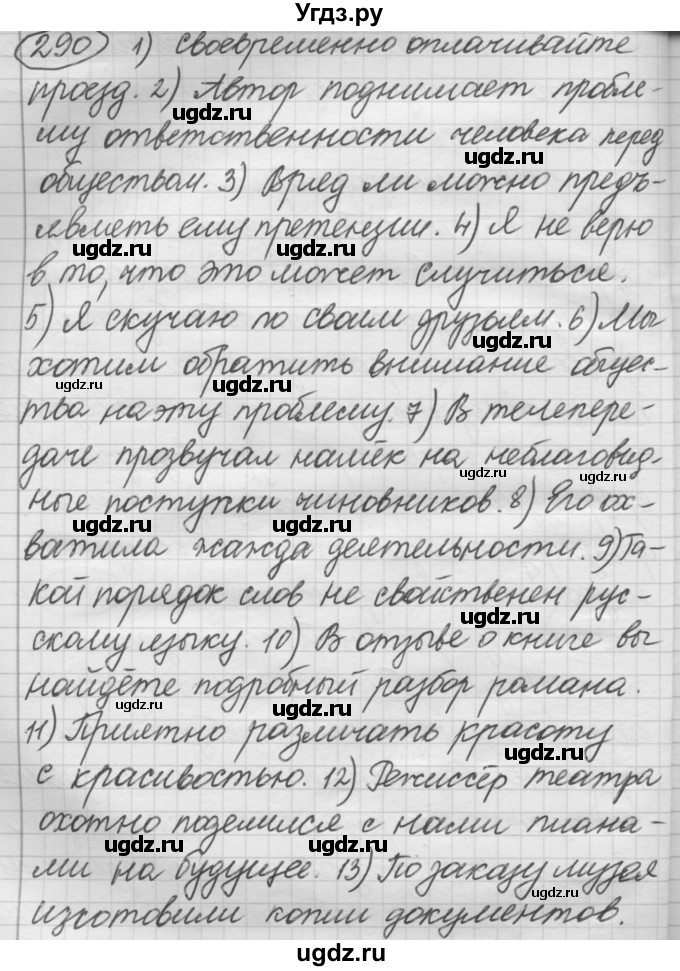 Угдз.ру
290 1) Своевременно оплачивайте
проезд. 2) Автор поднимает пробле-
му ответственности человека перед
обществом. 3) Вряд ли можно предъ-
являть ему претензии. 4) Я не верю
в то, что это может случиться.
5) Я скучаю по своим друзьям. 6) Мы
хотим обратить внимание общес-
тва на эту проблему. 7) В телепере-
даче прозвучал намёк на неблаговид-
ные поступки чиновников. 8) Его ох-
ватила жажда деятельности. 9) Та-
кой порядок слов не свойственен рус-
скому языку. 10) В отзыве о книге вы
найдёте подробный разбор романа.
11) Приятно различать красоту
с красивостью. 12) Режиссёр театра
охотно поделился с нами плана-
ми на будущее. 13) По заказу музея
изготовили копии документов.
ugdz.ru